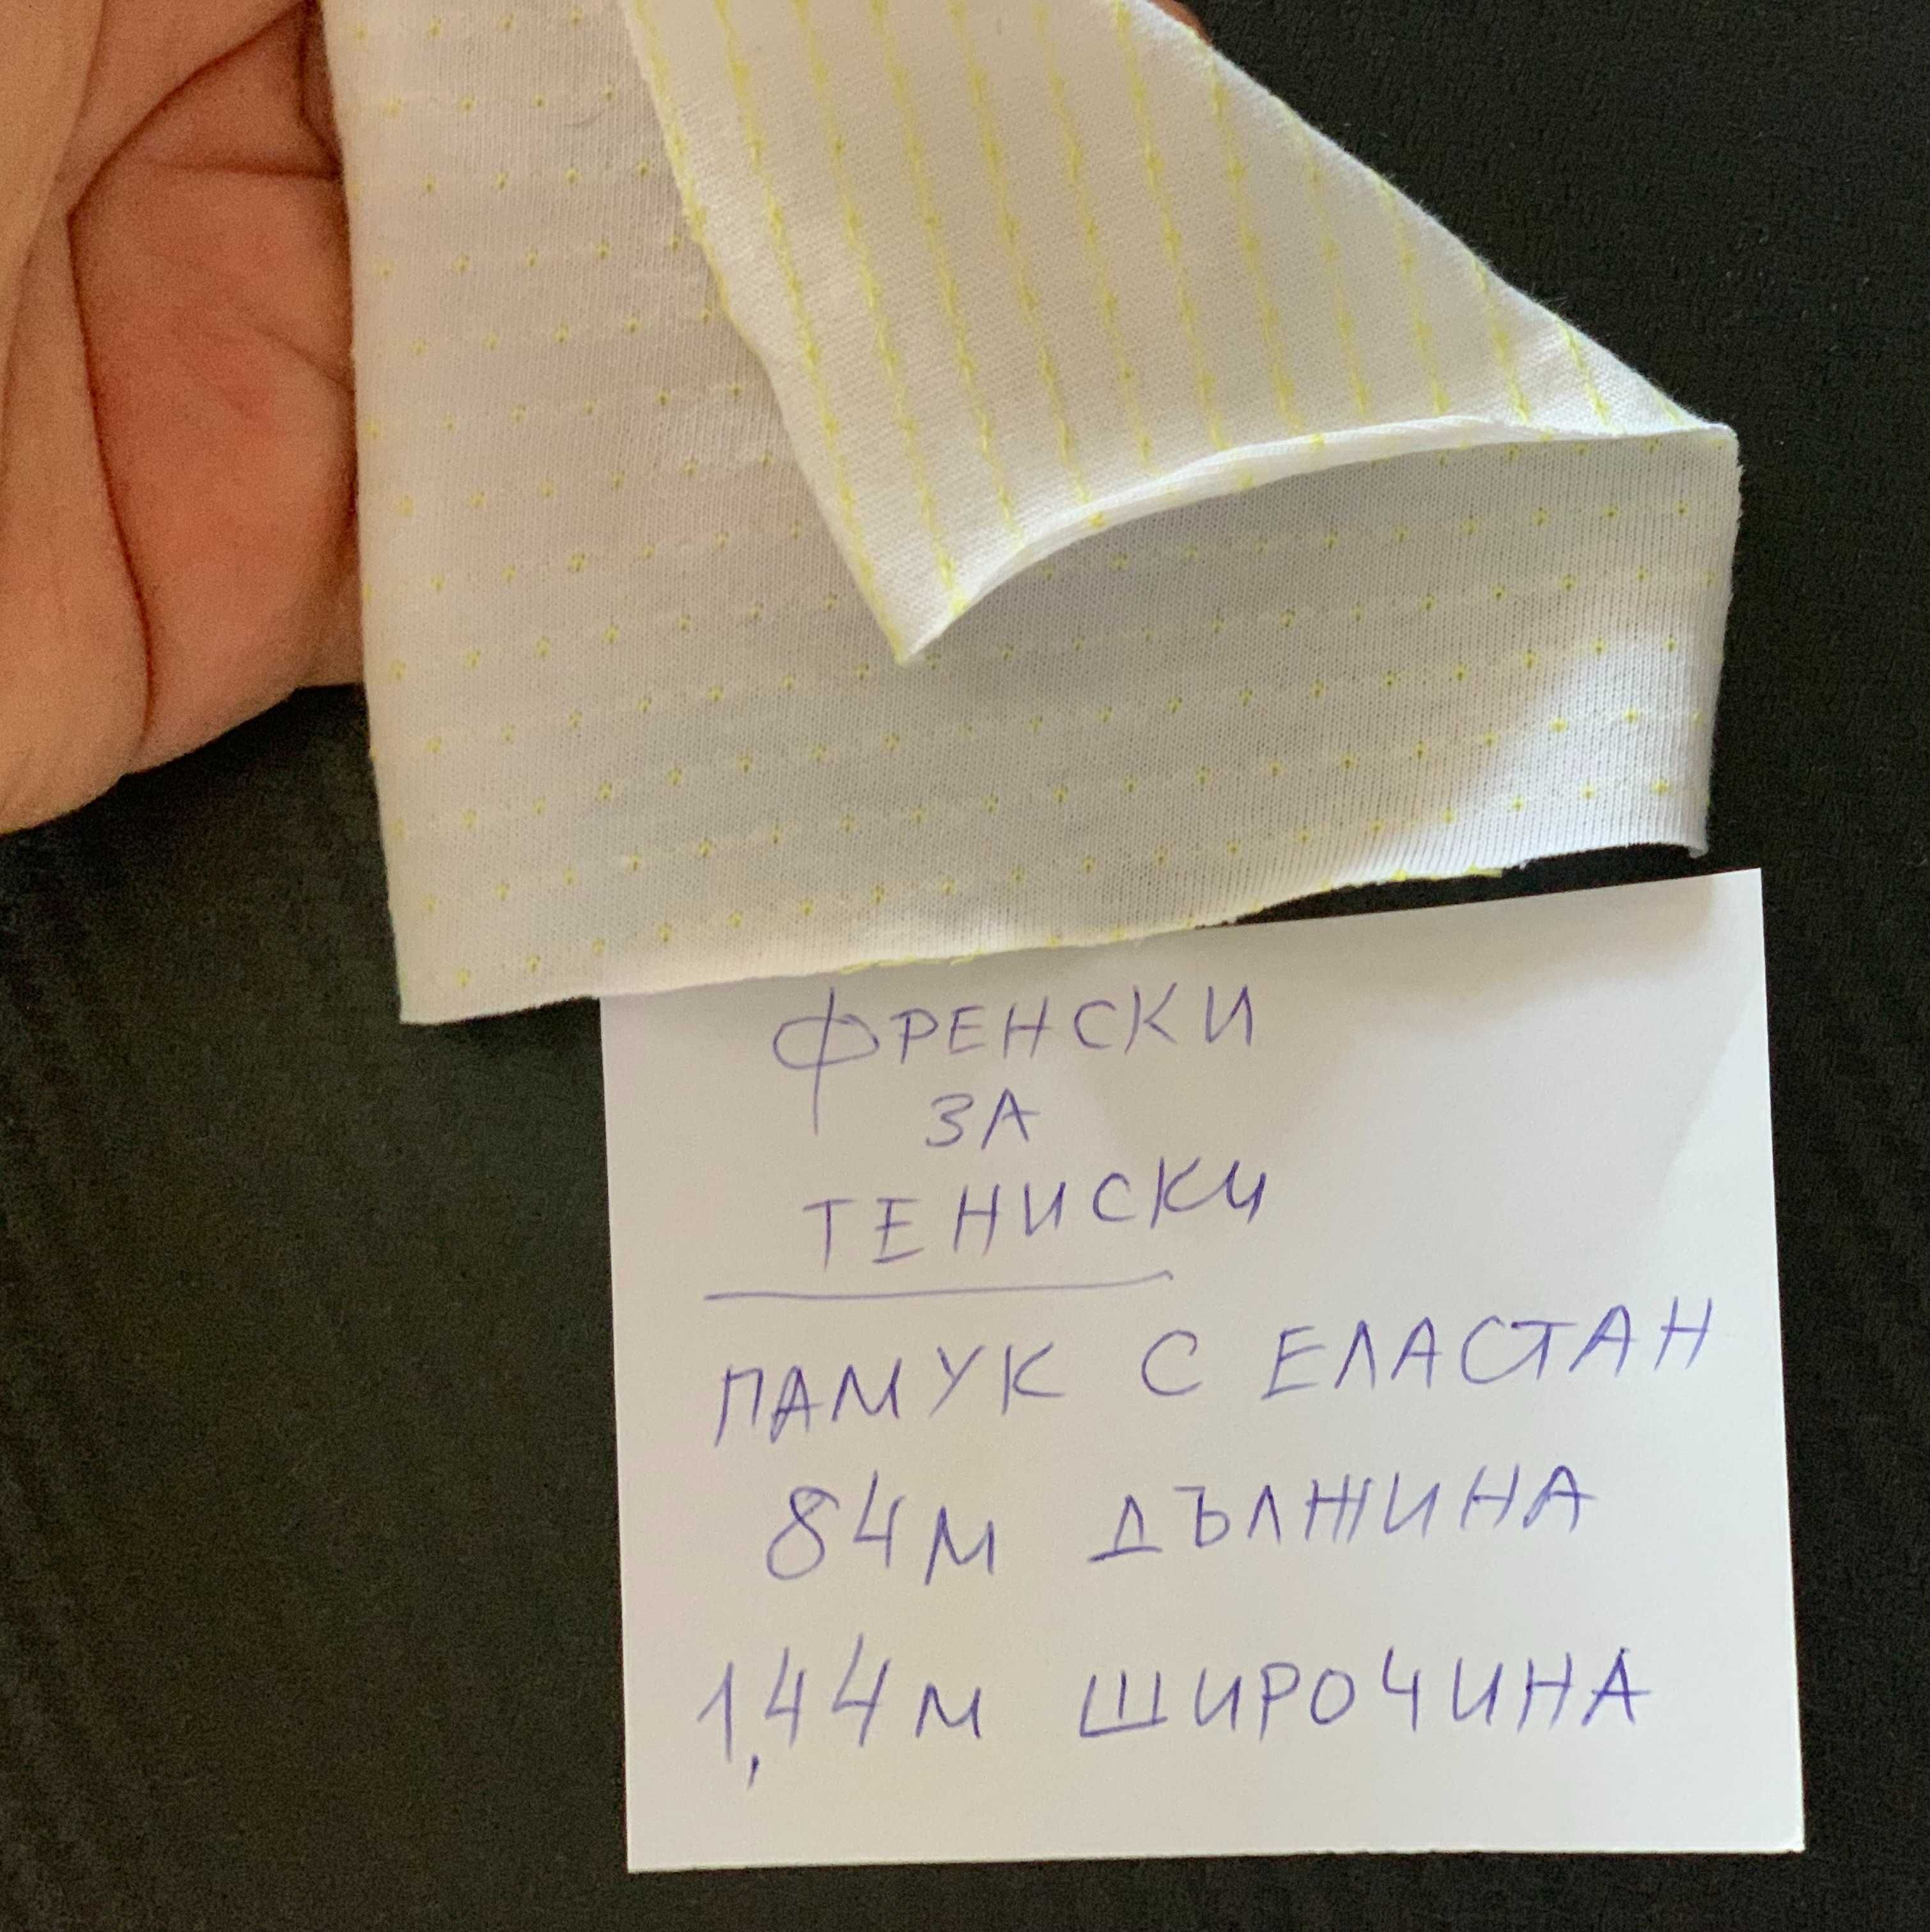 ФРЕНСКИ
ЗА
ТЕНИСКИ
ПАМУК С ЕЛАСТАН
84м ДЪЛЖИНА
1,44м ШИРОЧИНА